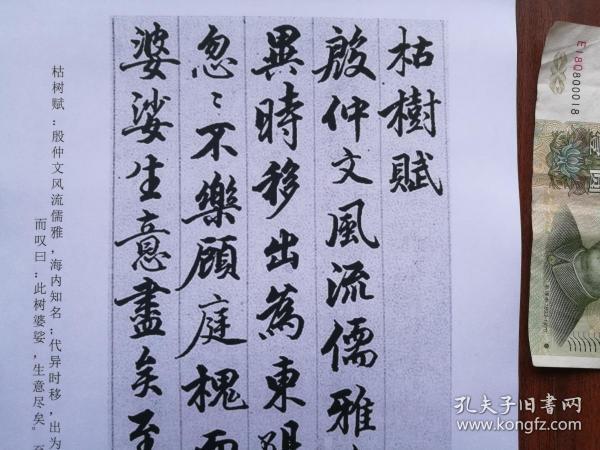 枯樹賦
殷仲文風流儒雅
異時移出為東陽
忽〻不樂顧庭槐而
婆娑生意盡矣至
枯树赋：殷仲文风流儒雅，海内知名；代异时移，出为
而叹曰：此树婆娑，生意尽矣。至
E18Q800018
孔夫子旧书网
www.kongfz.com